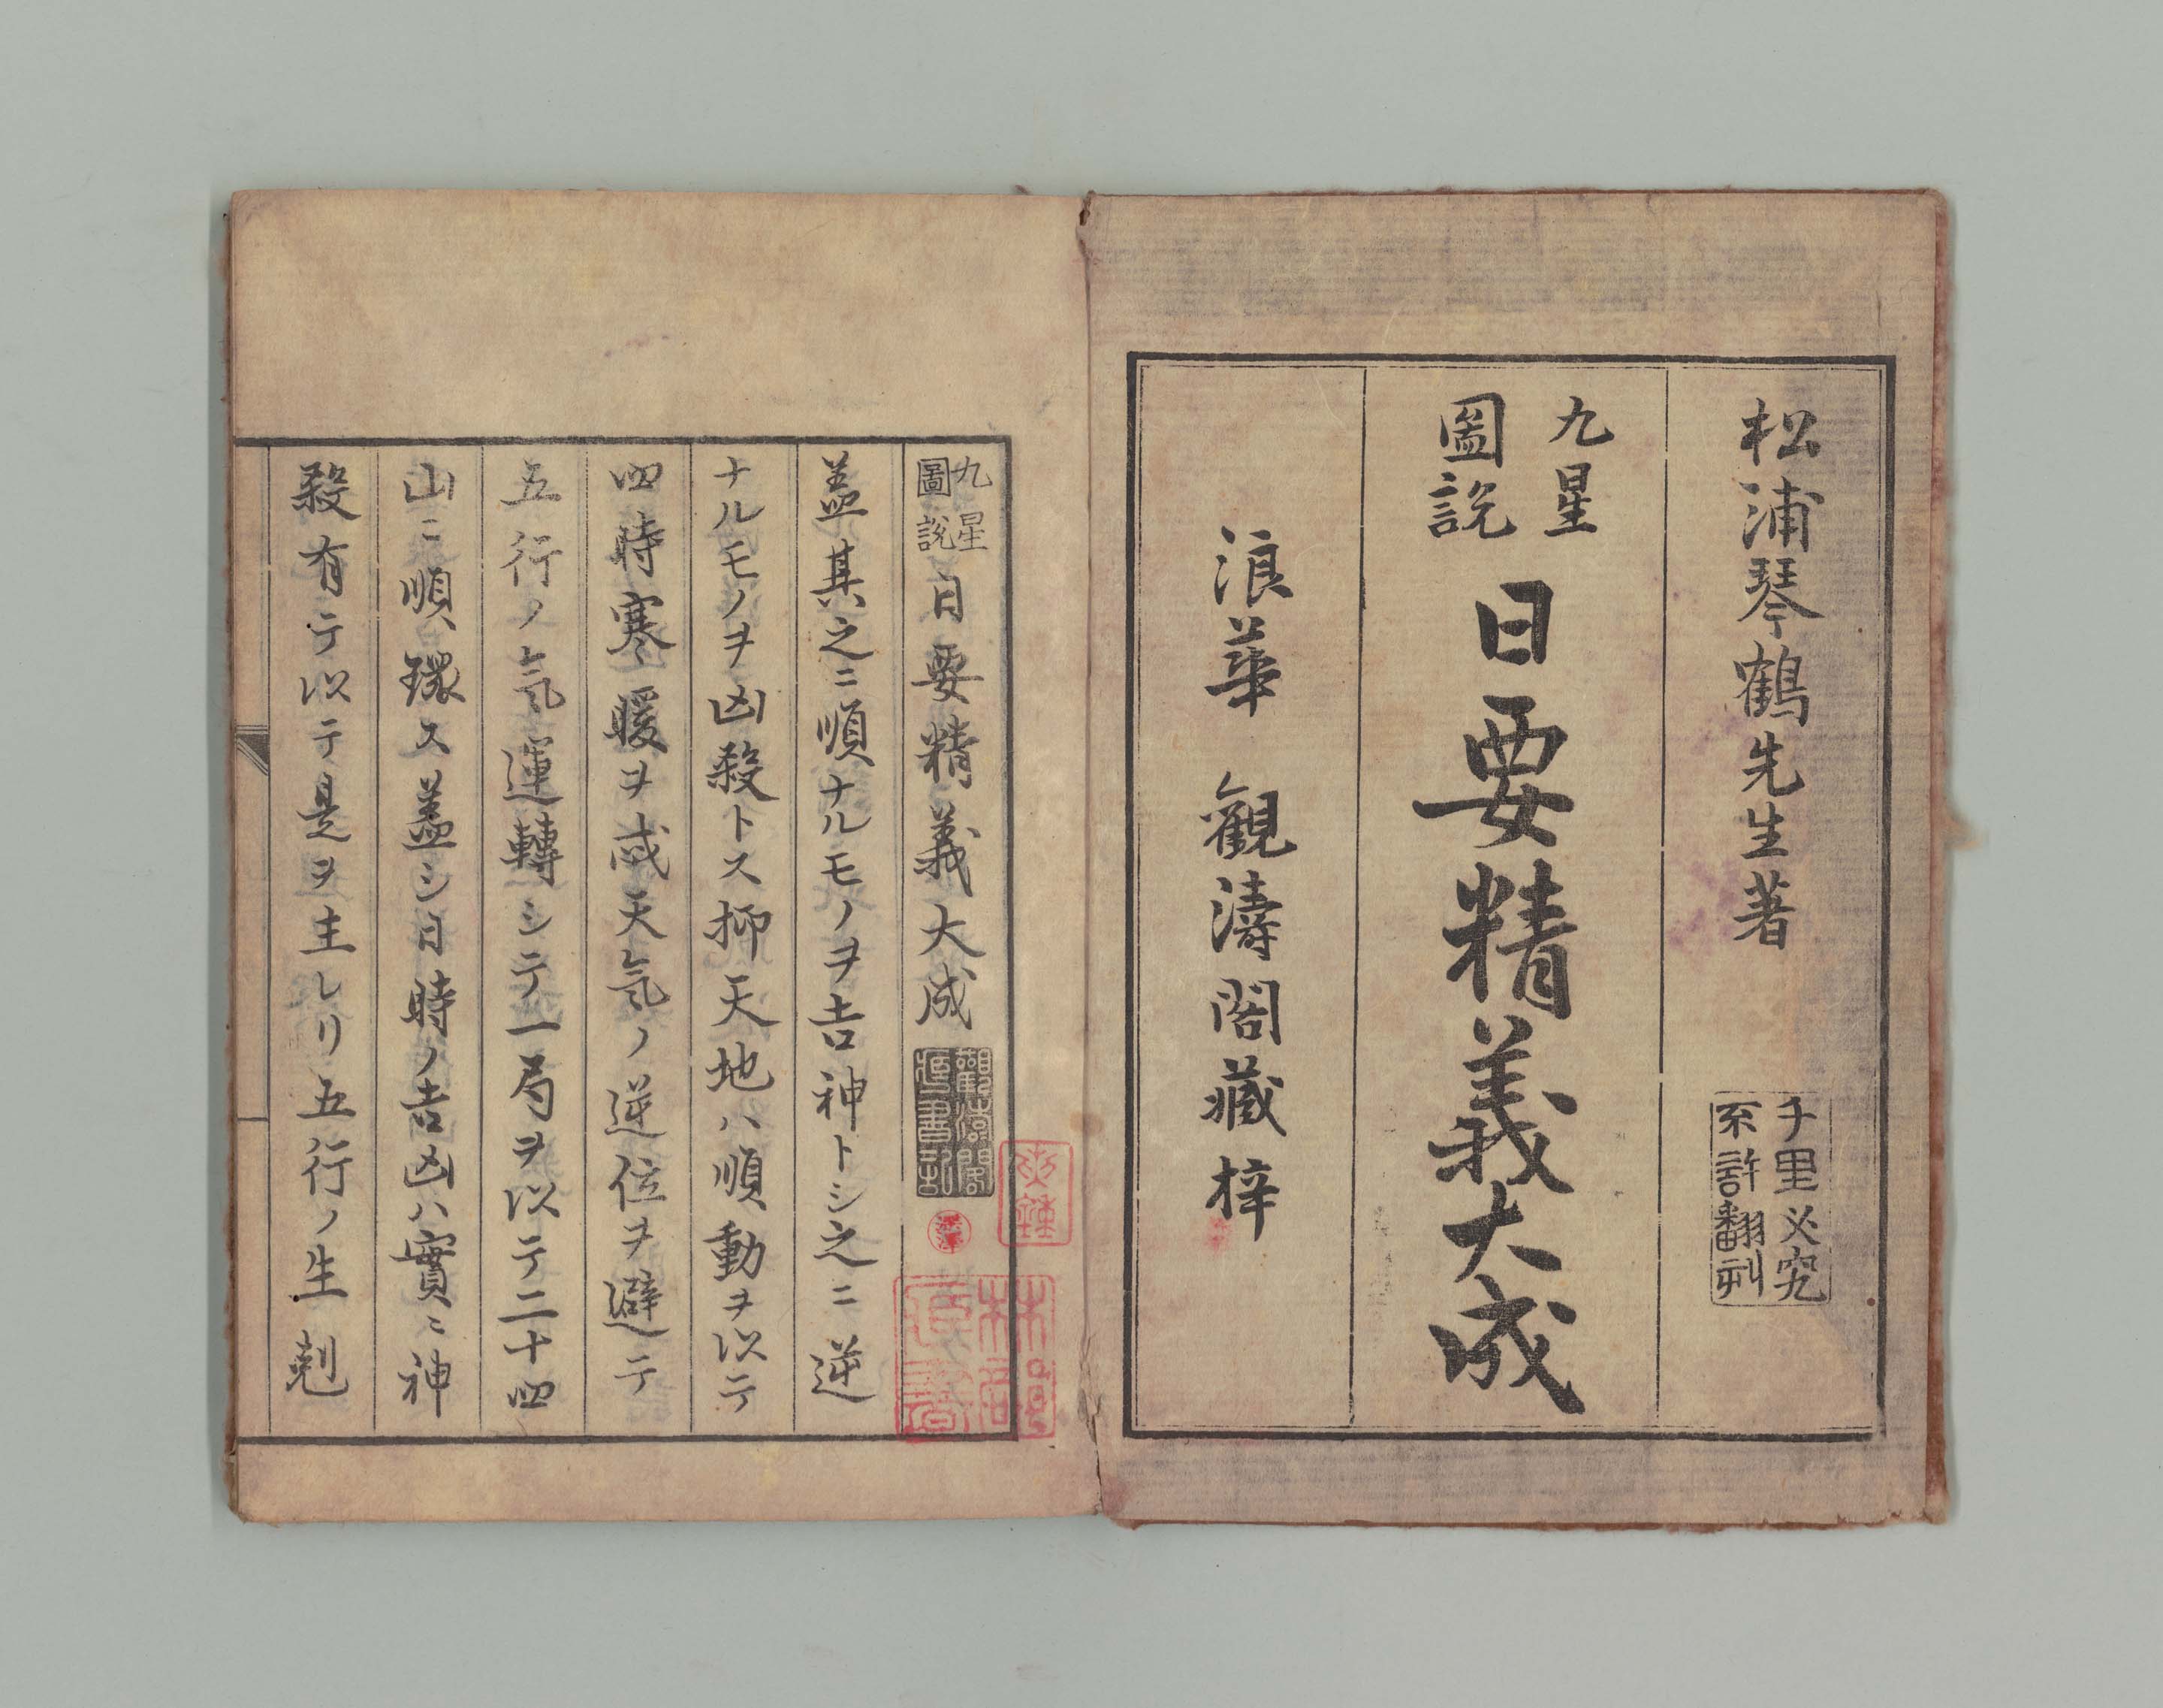 松浦琴鶴先生著
千里必究
不許翻刻
九星
圖説
日要精義大成
浪華 觀濤閣藏梓
九星
圖説
日要精義大成
蓋其之ニ順ナルモノヲ吉神トシ之ニ逆
ナルモノヲ凶殺トス抑天地ハ順動ヲ以テ
四時寒暖ヲ成天氣ノ逆位ヲ避テ
五行ノ氣運轉シテ一局ヲ以テ二十四
山ニ順環ス蓋シ日時ノ吉凶ハ實ニ神
殺有テ以テ是ヲ主レリ五行ノ生剋